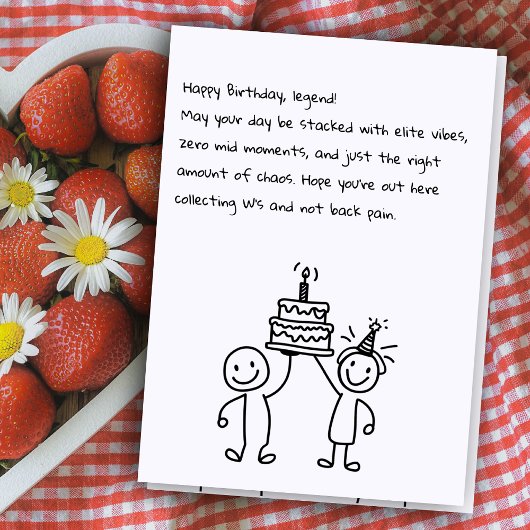 Happy Birthday, legend!
May your day be stacked with elite vibes,
zero mid moments, and just the right
amount of chaos. Hope you're out here
collecting W's and not back pain.